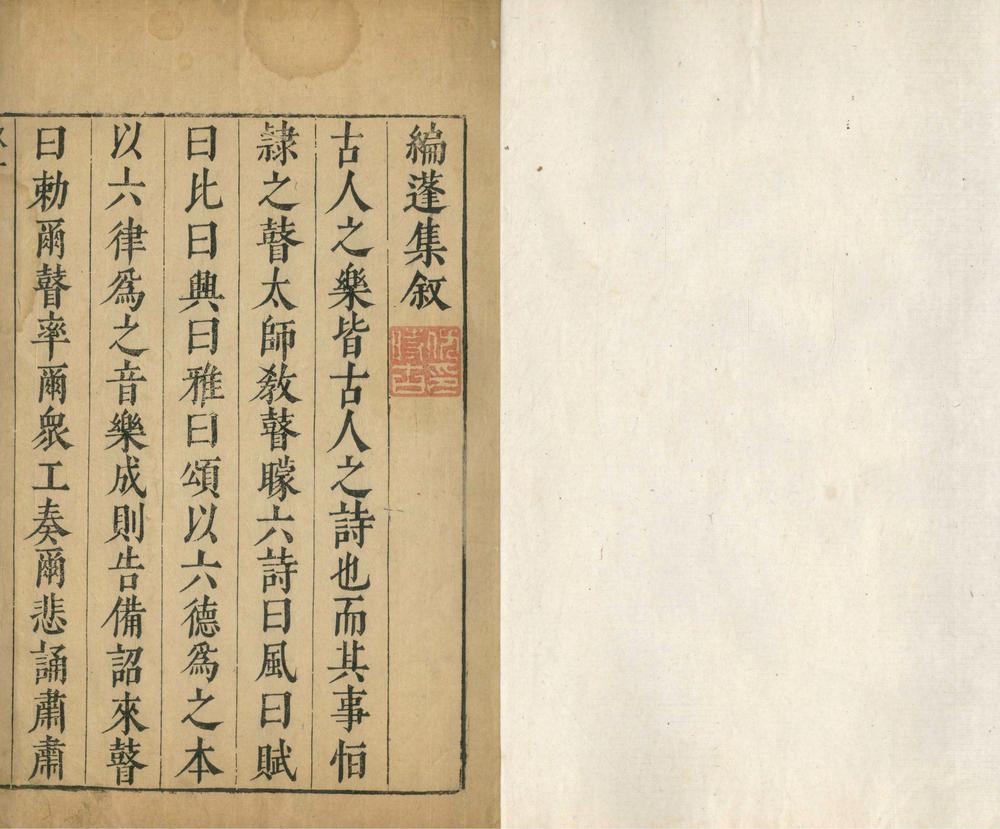 編蓬集敘
古人之樂皆古人之詩也而其事恒
隷之瞽太師敎瞽矇六詩曰風曰賦
曰比曰興曰雅曰頌以六德爲之本
以六律爲之音樂成則告備詔來瞽
曰勑爾瞽率爾衆工奏爾悲誦肅肅